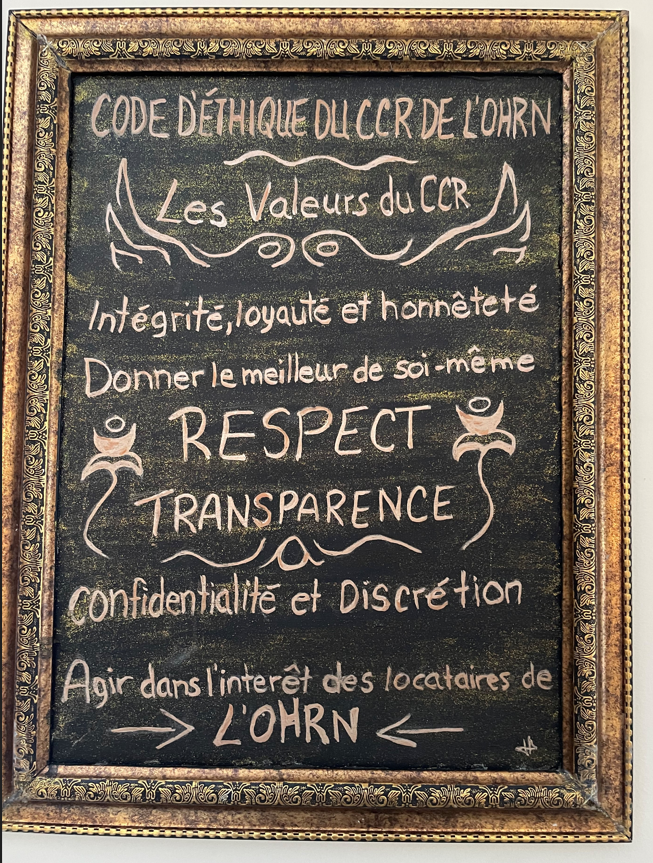 CODE D'ÉTHIQUE DU CCR DE L'OHRN
Les Valeurs du CCR
Intégrité, loyauté et honnêteté
Donner le meilleur de soi-même
RESPECT
TRANSPARENCE
Confidentialité et Discrétion
Agir dans l'interêt des locataires de
L'OHRN